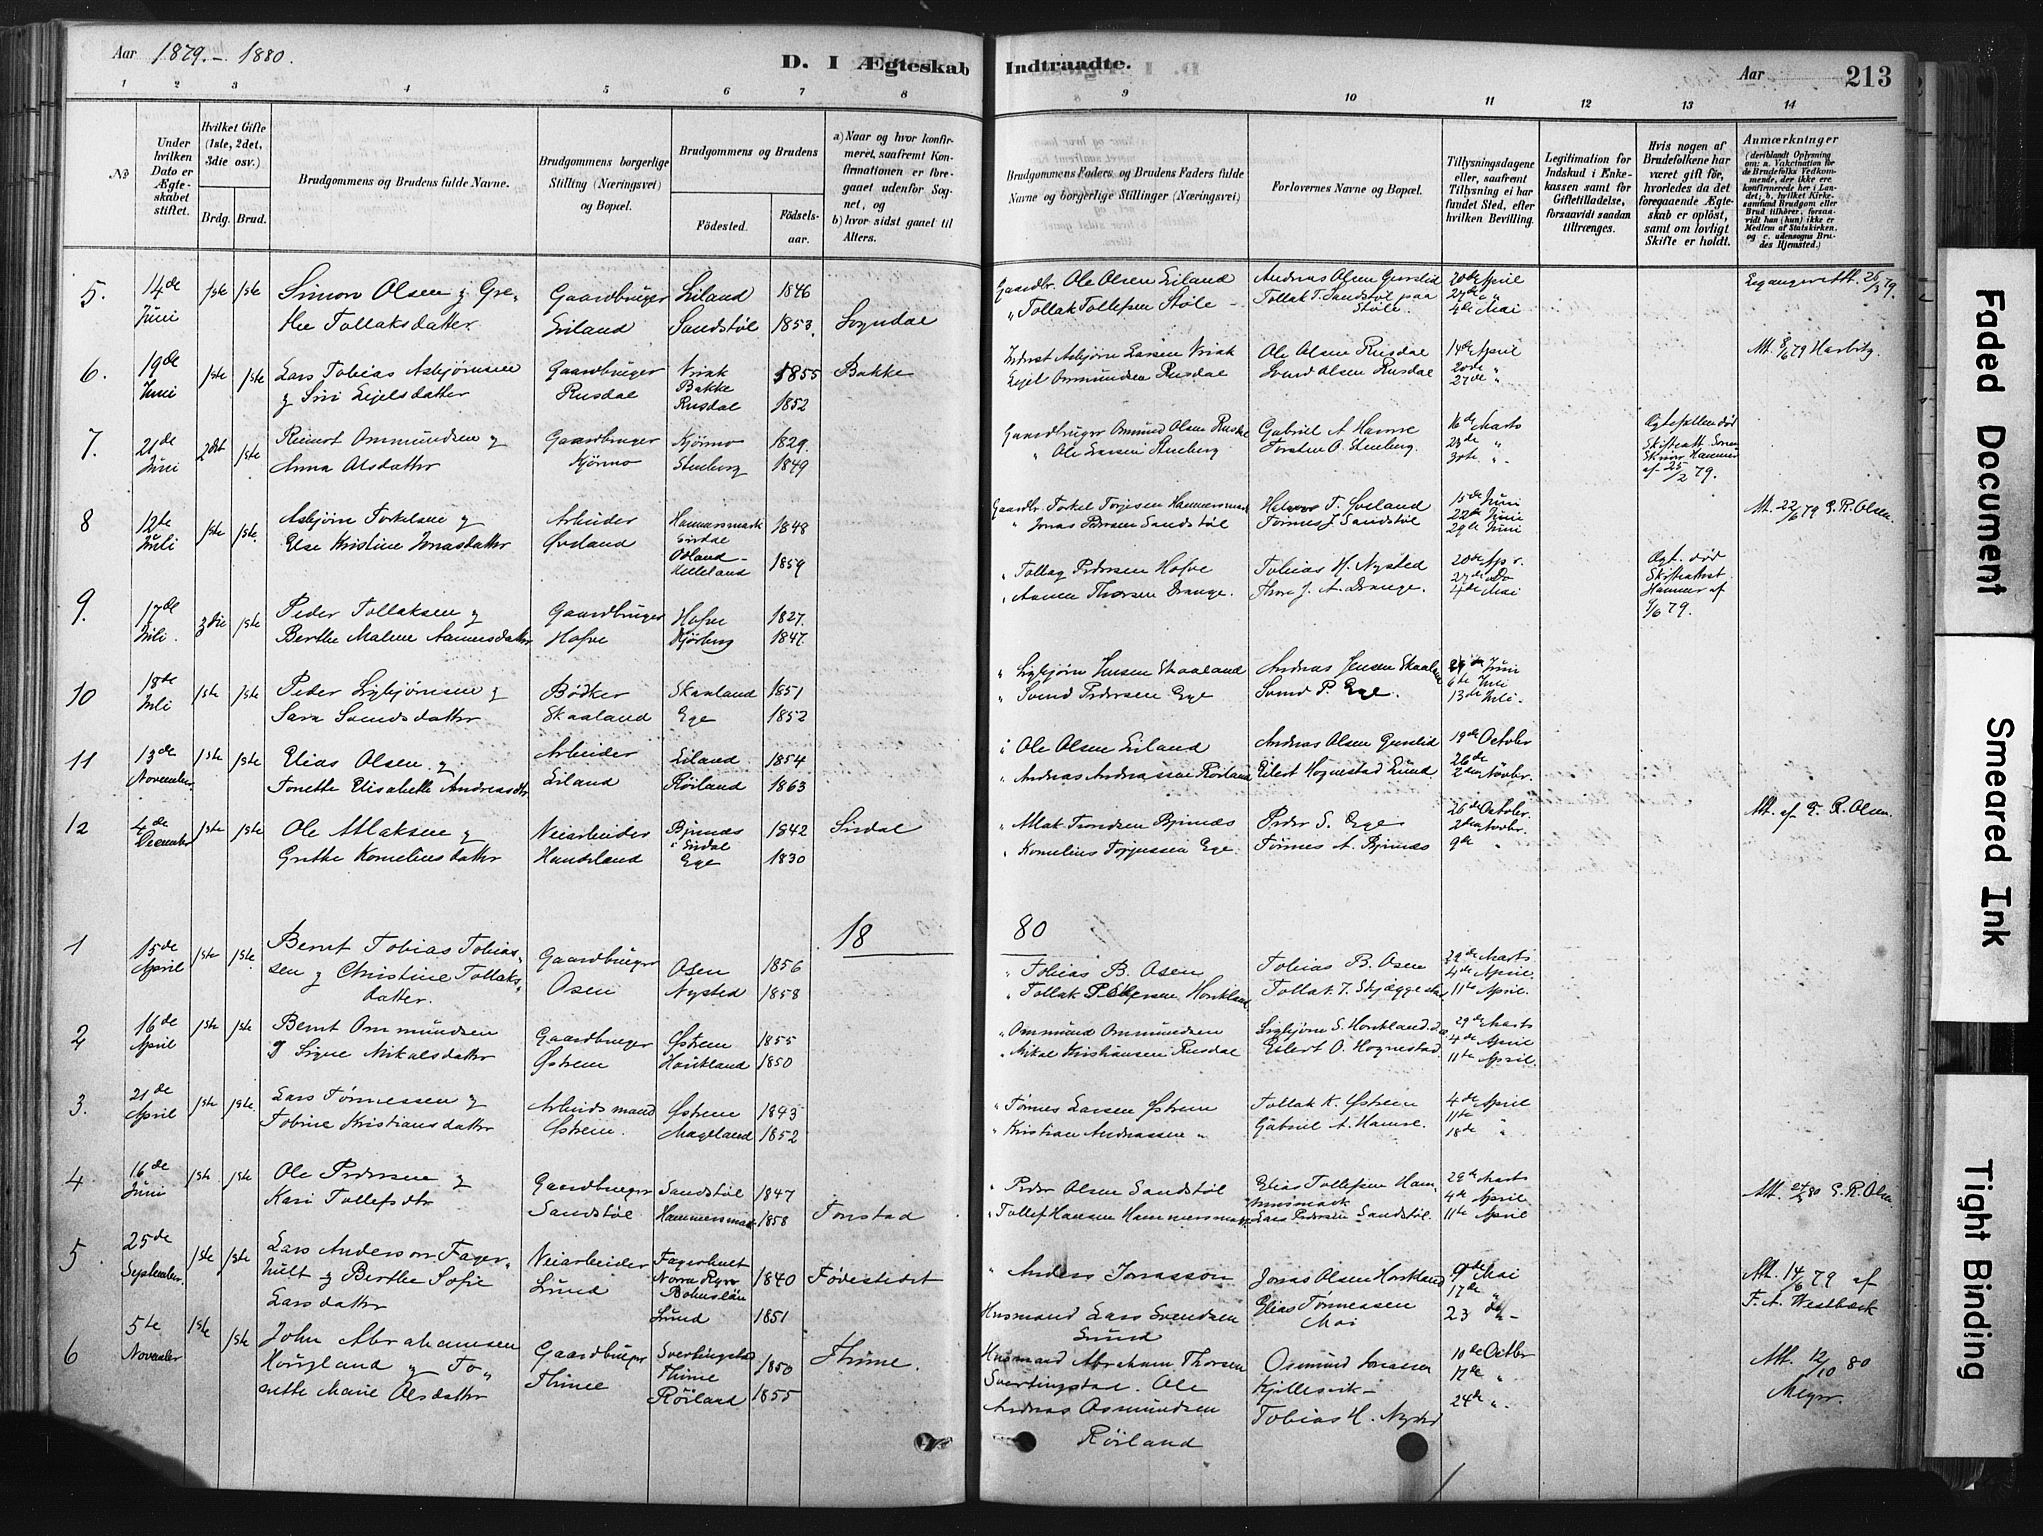 Aar 1879.–1880.
D. I Ægteskab Indtraadte.
Aar
213
1 2 3 4 5 6 7 8 9 10 11 12 13 14
No
Under hvilken Dato er Ægteskabet stiftet.
Hvilket Gifte (1ste, 2det, 3die osv.)
Brdg. Brud.
Brudgommens og Brudens fulde Navne.
Brudgommens borgerlige Stilling (Næringsvei) og Bopæl.
Brudgommens og Brudens
Fødested.
Fødselsaar.
a) Naar og hvor konfirmeret, saafremt Konfirmationen er foregaaet udenfor Sognet, og
b) hvor sidst gaaet til Alters.
Brudgommens Faders og Brudens Faders fulde Navne og borgerlige Stillinger (Næringsvei)
Forlovernes Navne og Bopæl.
Tillysningsdagene eller, saafremt Tillysning ei har fundet Sted, efter hvilken Bevilling.
Legitimation for Indskud i Enkekassen samt for Giftetilladelse, forsaavidt saadan tiltrænges.
Hvis nogen af Brudefolkene har været gift før, hvorledes da det foregaaende Ægteskab er opløst, samt om lovligt Skifte er holdt.
Anmærkninger
5. 14de Juni 1ste 1ste Simon Olsen g Grethe Tollaksdatter Gaardbruger Eiland Eiland 1846 Sandstøl 1853. Sogndal Gaardbr. Ole Olsen Eiland " Tollak Tollefsen Støle Andreas Olsen Gurslid Tollak T. Sandstøl paa Støle. 20de April 27de " 4de Mai
6. 19de Juni 1ste 1ste Lars Tobias Asbjørnsen g Siri Eyelsdatter Gaardbruger Rusdal Vriak Bakke 1855 Rusdal 1852 Bakke Indrst Asbjørn Larsen Vriak Eyel Ommundsen Rusdal Ole Olsen Rusdal Svend Olsen Rusdal 14de April 20de " 27de " Att. 8/6 79 Harbitz.
7. 21de Juni 2det 1ste Reinert Ommundsen g Anna Olsdatter Gaardbruger Kjørmo Kjørmo 1829. Stenberg 1849 Gaardbruger Ommund Olsen " Ole Larsen Stenberg Gabriel A Hamre Torsten O. Stenberg. 16de Marts 23de " 30te " Ægtefellen død Skifteatt. Hammer af 25/2 79.
8 12te Juli 1ste 1ste Asbjørn Torkelsen g Else Kristine Jonasdatter Arbeider Øveland Hammersmark Sirdal 1848 Odland – Helleland 1859 Gaardbr. Torkel Torjesen Hammersmark " Jonas Persen Sandstøl T. Øveland Tønnes J Sandstøl 15de Juni 22de Juni 29de Juni Att. 22/6 79 E. R. Olsen.
9. 17de Juli. 3die 1ste Peder Tollaksen g Berthe Malene Aanensdatter Gaardbruger Hofve Hofve 1827. Kjørberg 1847. " Tollag Pedersen Hofve " Aanen Thorsen Drange. Tobias H. Nysted Thore J. A. Drange. 20de Apr. 27de Do 4de Mai Ægt. død Skifteattest Hammer af 1/6 79.
10 18de Juli 1ste 1ste Peder Sigbjørnsen g Sara Svendsdatter Bødker Skaaland Skaaland 1851 Ege 1852 " Sigbjørn Jensen Skaaland " Svend Pedersen Ege Andreas Jensen Skaaland Svend P. Ege. 29de Juni 6te Juli 13de Juli.
11 13de November 1ste 1ste Elias Olsen g Tonette Elisabette Andreasdtr Arbeider Eiland Eiland 1854 Røiland 1863 " Ole Olsen Eiland " Andreas Andreassen Røiland Andreas Olsen Gurslid Eilert Hognestad Lund 19de October 26de 2den Novbr.
12 4de December 1ste 1ste Ole Atlaksen g Grethe Korneliusdatter Veiarbeider Haneland Bjunæs i Sirdal 1842 Ege 1830 Sirdal " Atlak Trondsen Bjunæs " Kornelius Torjussen Ege. Peder S. Ege Tønnes A. Bjunæs 26de October. 2den Novbr. 9de " Att. af E. R. Olsen.
18 80
1 15de April 1ste 1ste Bernt Tobias Tobiassen g Christine Tollaksdatter. Gaardbruger Osen Osen 1856 Nysted 1858 " Tobias B. Osen " Tollak Pedersen Houkland Tobias B. Osen Tollak T. Skjæggestad 29de Marts 4de April. 11te April.
2 16de April 1ste 1ste Bernt Ommundsen g Signe Mikalsdatter Gaardbruger Østrem Østrem 1855 Houkland 1850 " Ommund Ommundsen " Mikal Kristiansen Rusdal Sigbjørn S. Houkland Eilert O. Hognestad 29de Marts 4de April 11te April.
3. 21de April 1ste 1ste. Lars Tønnessen g Tobine Kristiansdatter Arbeidsmand Østrem. Østrem 1843 Mageland 1852 " Tønnes Larsen Østrem " Kristian Andreassen " Tollak K. Østrem Gabriel A. Hamre. 4de April 11te 18de "
4 16de Juni 1ste 1ste Ole Pedersen g Kari Tollefsdtr Gaardbruger Sandstøl Sandstøl 1847 Hammersmark 1858 Tonstad " Peder Olsen Sandstøl " Tollef Hansen Hammersmark Elias Tollefsen Hammersmark Lars Pedersen Sandstøl. 29de Marts 4de April 11te April Att. 80 E. R. Olsen
5 25de September. 1ste 1ste Lars Anderson Fagerhult g Berthe Sofie Larsdatter Veiarbeider Lund Fagerhult Norra Ryrr Bohuslän 1840 Lund 1851 Fødestedet " Anders Jonasson Husmand Lars Svendsen Lund Jonas Olsen Houkland Elias Tønnessen Moi 9de Mai 17de " 23 de – Att. 14/6 79 af F. A. Westbeck
6 5te November 1ste 1ste John Abrahamsen Haugland g Tonette Marie Olsdatter Gaardbruger Thime Svertingstad Thime 1850 Røiland 1855 Thime. Husmand Abraham Thorsen Svertingstad. Ole Andreas Osmundsen Røiland Osmund Kjellesvik – Tobias H. Nysted 10de Octbr 17de " 24de ". Att. 12/10 80 Meyer.
Faded Document
Smeared Ink
Tight Binding